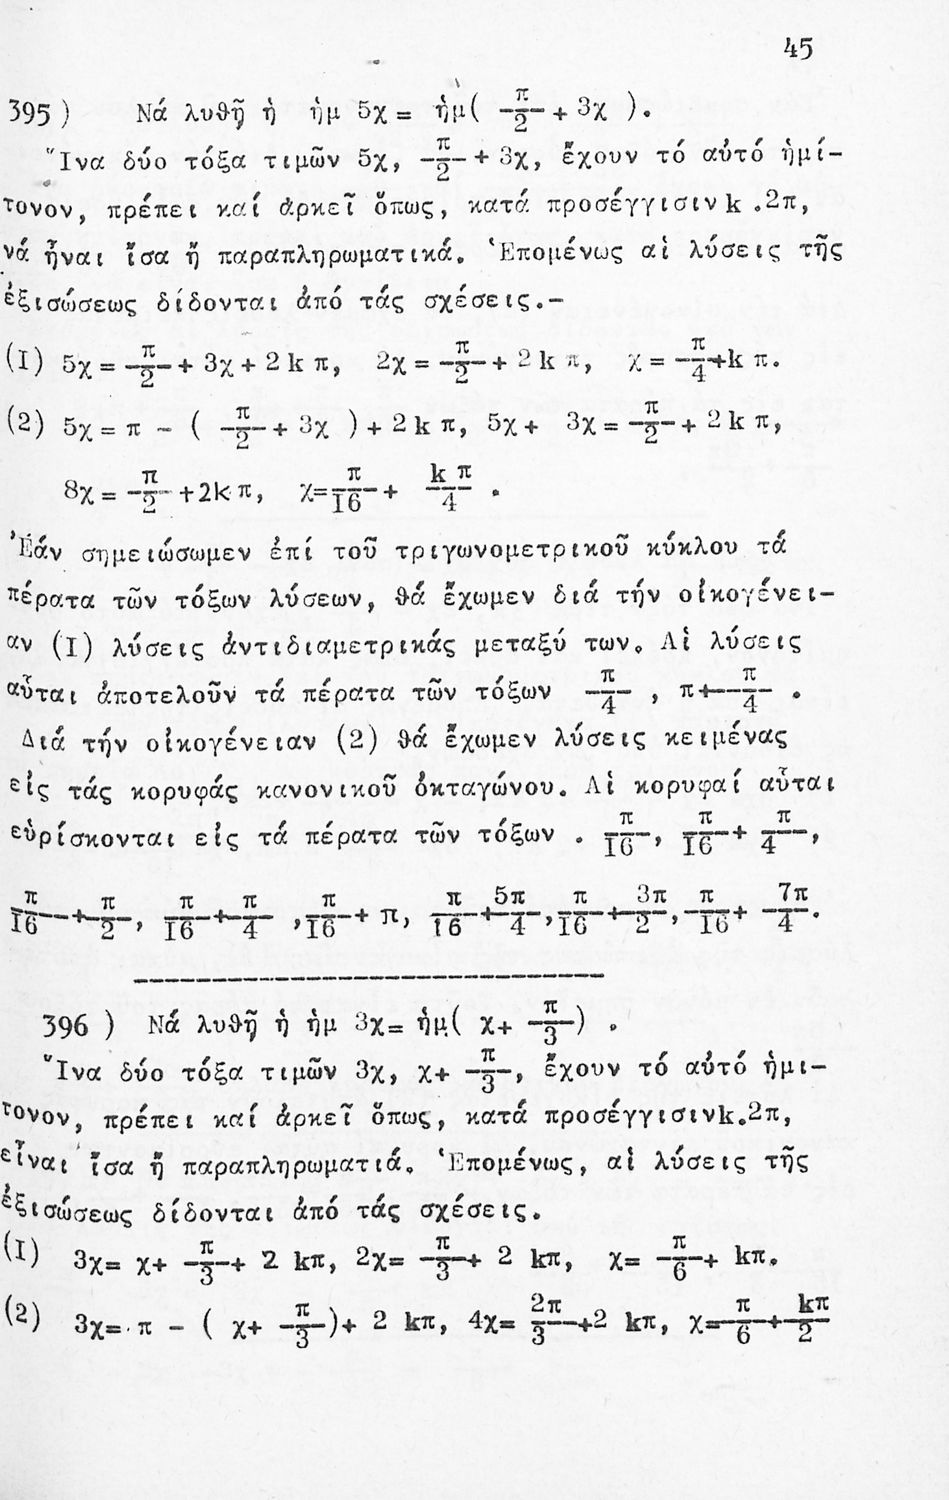 45
395) Νά λυθῇ ἡ ἡμ 5χ = ἡμ( π/2 + 3χ ).
Ἵνα δύο τόξα τιμῶν 5χ, π/2 + 3χ, ἔχουν τό αὐτό ἡμί-
τονον, πρέπει καί ἀρκεῖ ὅπως, κατά προσέγγισιν k .2π,
νά ἦναι ἴσα ἤ παραπληρωματικά. Ἑπομένως αἱ λύσεις τῆς
ἐξισώσεως δίδονται ἀπό τάς σχέσεις.-
(I) 5χ = π/2 + 3χ + 2 k π, 2χ = π/2 + 2 k π, χ = π/4 + k π.
(2) 5χ = π - ( π/2 + 3χ ) + 2 k π, 5χ + 3χ = π/2 + 2 k π,
8χ = π/2 + 2k π, χ = π/I6 + k π/4 .
Ἐάν σημειώσωμεν ἐπί τοῦ τριγωνομετρικοῦ κύκλου τά
πέρατα τῶν τόξων λύσεων, θά ἔχωμεν διά τήν οἰκογένει-
αν (I) λύσεις ἀντιδιαμετρικάς μεταξύ των. Αἱ λύσεις
αὗται ἀποτελοῦν τά πέρατα τῶν τόξων π/4 , π + π/4 .
Διά τήν οἰκογένειαν (2) θά ἔχωμεν λύσεις κειμένας
εἰς τάς κορυφάς κανονικοῦ ὀκταγώνου. Αἱ κορυφαί αὗται
εὑρίσκονται εἰς τά πέρατα τῶν τόξων . π/I6 , π/I6 + π/4 ,
π/I6 + π/2 , π/I6 + π/4 , π/I6 + π, π/I6 + 5π/4 , π/I6 + 3π/2 , π/I6 + 7π/4 .
396 ) Νά λυθῇ ἡ ἡμ 3χ= ἡμ( χ+ π/3 ) .
Ἵνα δύο τόξα τιμῶν 3χ, χ+ π/3 , ἔχουν τό αὐτό ἡμι-
τονον, πρέπει καί ἀρκεῖ ὅπως, κατά προσέγγισινk.2π,
εἶναι ἴσα ἤ παραπληρωματιά. Ἑπομένως, αἱ λύσεις τῆς
ἐξισώσεως δίδονται ἀπό τάς σχέσεις.
(I) 3χ= χ+ π/3 + 2 kπ, 2χ= π/3 + 2 kπ, χ= π/6 + kπ.
(2) 3χ= π - ( χ+ π/3 )+ 2 kπ, 4χ= 2π/3 +2 kπ, χ= π/6 + kπ/2